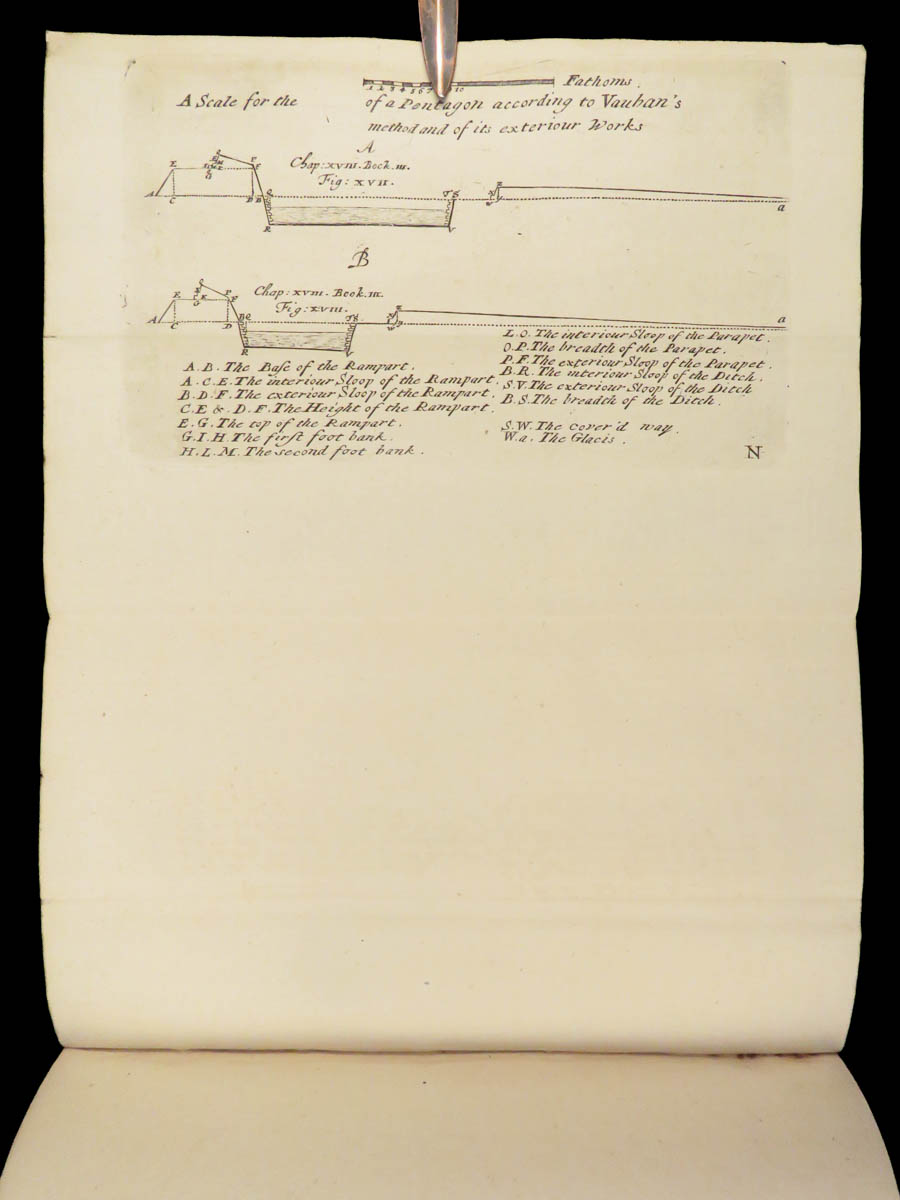 Fathoms.
A Scale for the of a Pentagon according to Vauban's
method and of its exteriour Works
A
Chap: xviii. Book. iii.
Fig: xvii.
B
Chap: xviii. Book. iii.
Fig: xviii.
A. B. The Base of the Rampart.
A. C. E. The interiour Sloop of the Rampart.
B. D. F. The exteriour Sloop of the Rampart.
C. E & D. F. The Height of the Rampart.
E. G. The top of the Rampart.
G. I. H. The first foot bank.
H. L. M. The second foot bank.
L. O. The interiour Sloop of the Parapet.
O. P. The breadth of the Parapet.
P. F. The exteriour Sloop of the Parapet.
B. R. The interiour Sloop of the Ditch.
S. V. The exteriour Sloop of the Ditch
B. S. The breadth of the Ditch.
S. W. The cover'd way.
W. a. The Glacis.
N